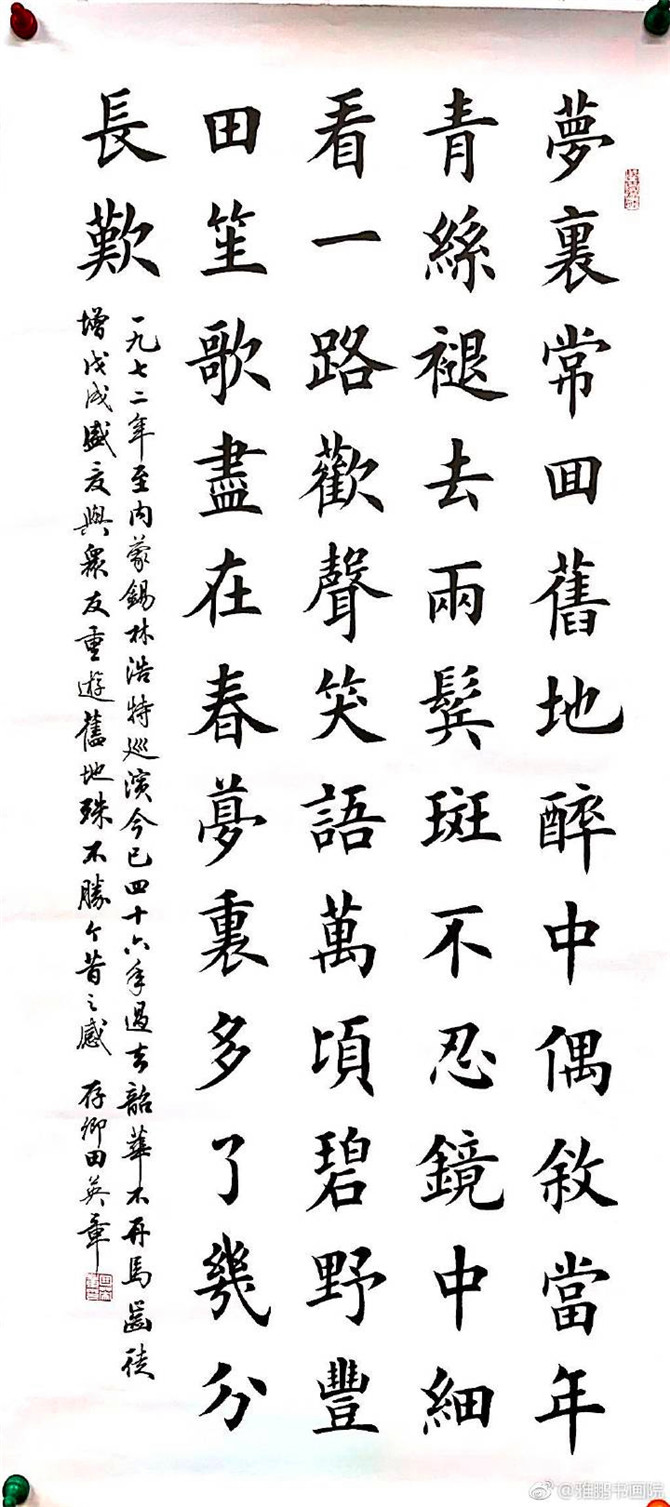 夢裏常回舊地醉中偶敘當年
青絲褪去兩鬢斑不忍鏡中細
看一路歡聲笑語萬頃碧野豐
田笙歌盡在春夢裏多了幾分
長歎
一九七二年至内蒙錫林浩特巡演今已四十六年過去韶華不再馬齒徒
增戊戌盛夏與衆友重遊舊地殊不勝今昔之感 存卿田英章
@雅鹏书画院